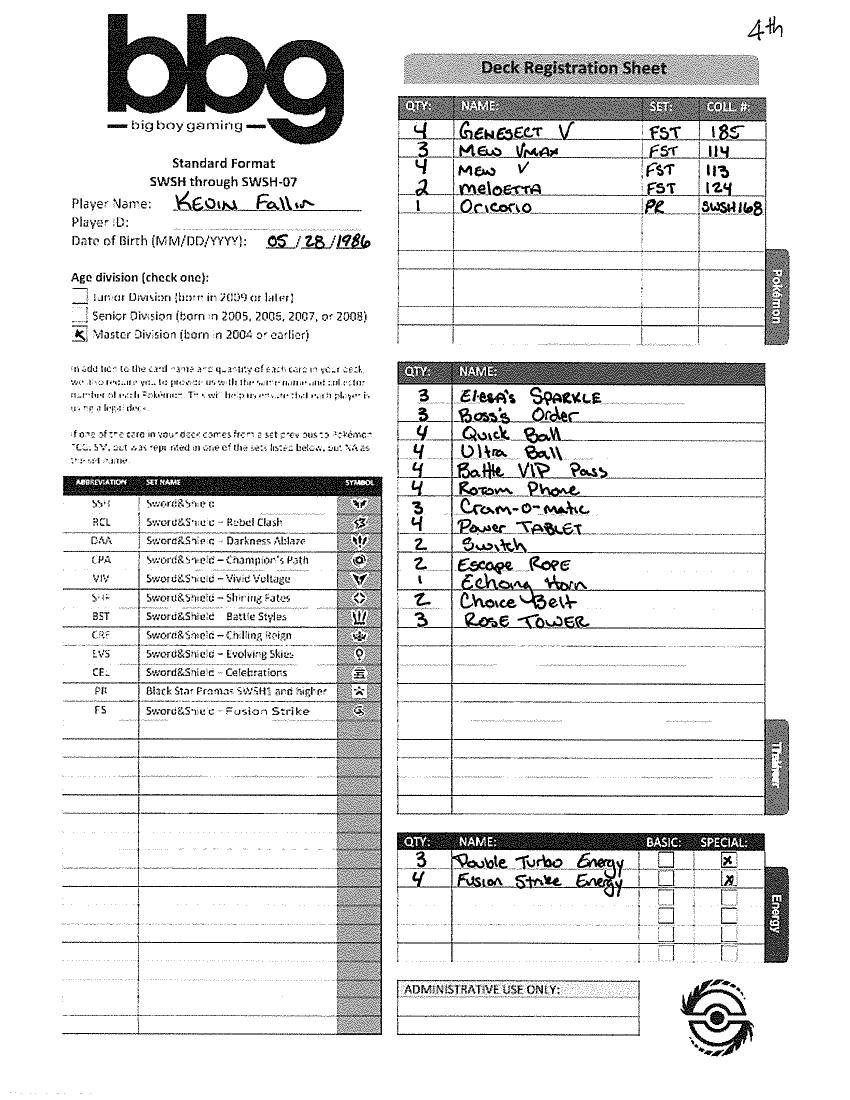 4th
bbg
big boy gaming
Standard Format
SWSH through SWSH-07
Player Name: KEVIN Fallin
Player ID:
Date of Birth (MM/DD/YYYY): 05/28/1986
Age division (check one):
Junior Division (born in 2009 or later)
Senior Division (born in 2005, 2006, 2007, or 2008)
Master Division (born in 2004 or earlier)
In addition to the card name and quantity of each card in your deck,
we also require you to provide us with the set name and collector
number of each Pokémon. This will help us ensure that each player is
using a legal deck.
If one of the card in your deck comes from a set previous to Pokémon
TCG: SM, but was reprinted in one of the sets listed below, put NA as
the set name.
ABBREVIATION SET NAME SYMBOL
SSH Sword&Shield
RCL Sword&Shield – Rebel Clash
DAA Sword&Shield – Darkness Ablaze
CPA Sword&Shield – Champion's Path
VIV Sword&Shield – Vivid Voltage
SHF Sword&Shield – Shining Fates
BST Sword&Shield Battle Styles
CRE Sword&Shield – Chilling Reign
EVS Sword&Shield – Evolving Skies
CEL Sword&Shield – Celebrations
PR Black Star Promos SWSH1 and higher
FS Sword&Shield – Fusion Strike
Deck Registration Sheet
QTY: NAME: SET: COLL. #:
4 GENESECT V FST 185
3 MEW VMAX FST 114
4 MEW V FST 113
2 MELOETTA FST 124
1 Oricorio PR SWSH168
Pokémon
QTY: NAME:
3 Elesa's SPARKLE
3 Boss's Order
4 Quick Ball
4 Ultra Ball
4 Battle VIP Pass
4 Rotom Phone
3 Cram-o-matic
4 Power TABLET
2 Switch
2 Escape ROPE
1 Echong Horn
2 Choice Belt
3 ROSE TOWER
Trainer
QTY: NAME: BASIC: SPECIAL:
3 Double Turbo Energy x
4 Fusion Strike Energy x
Energy
ADMINISTRATIVE USE ONLY: